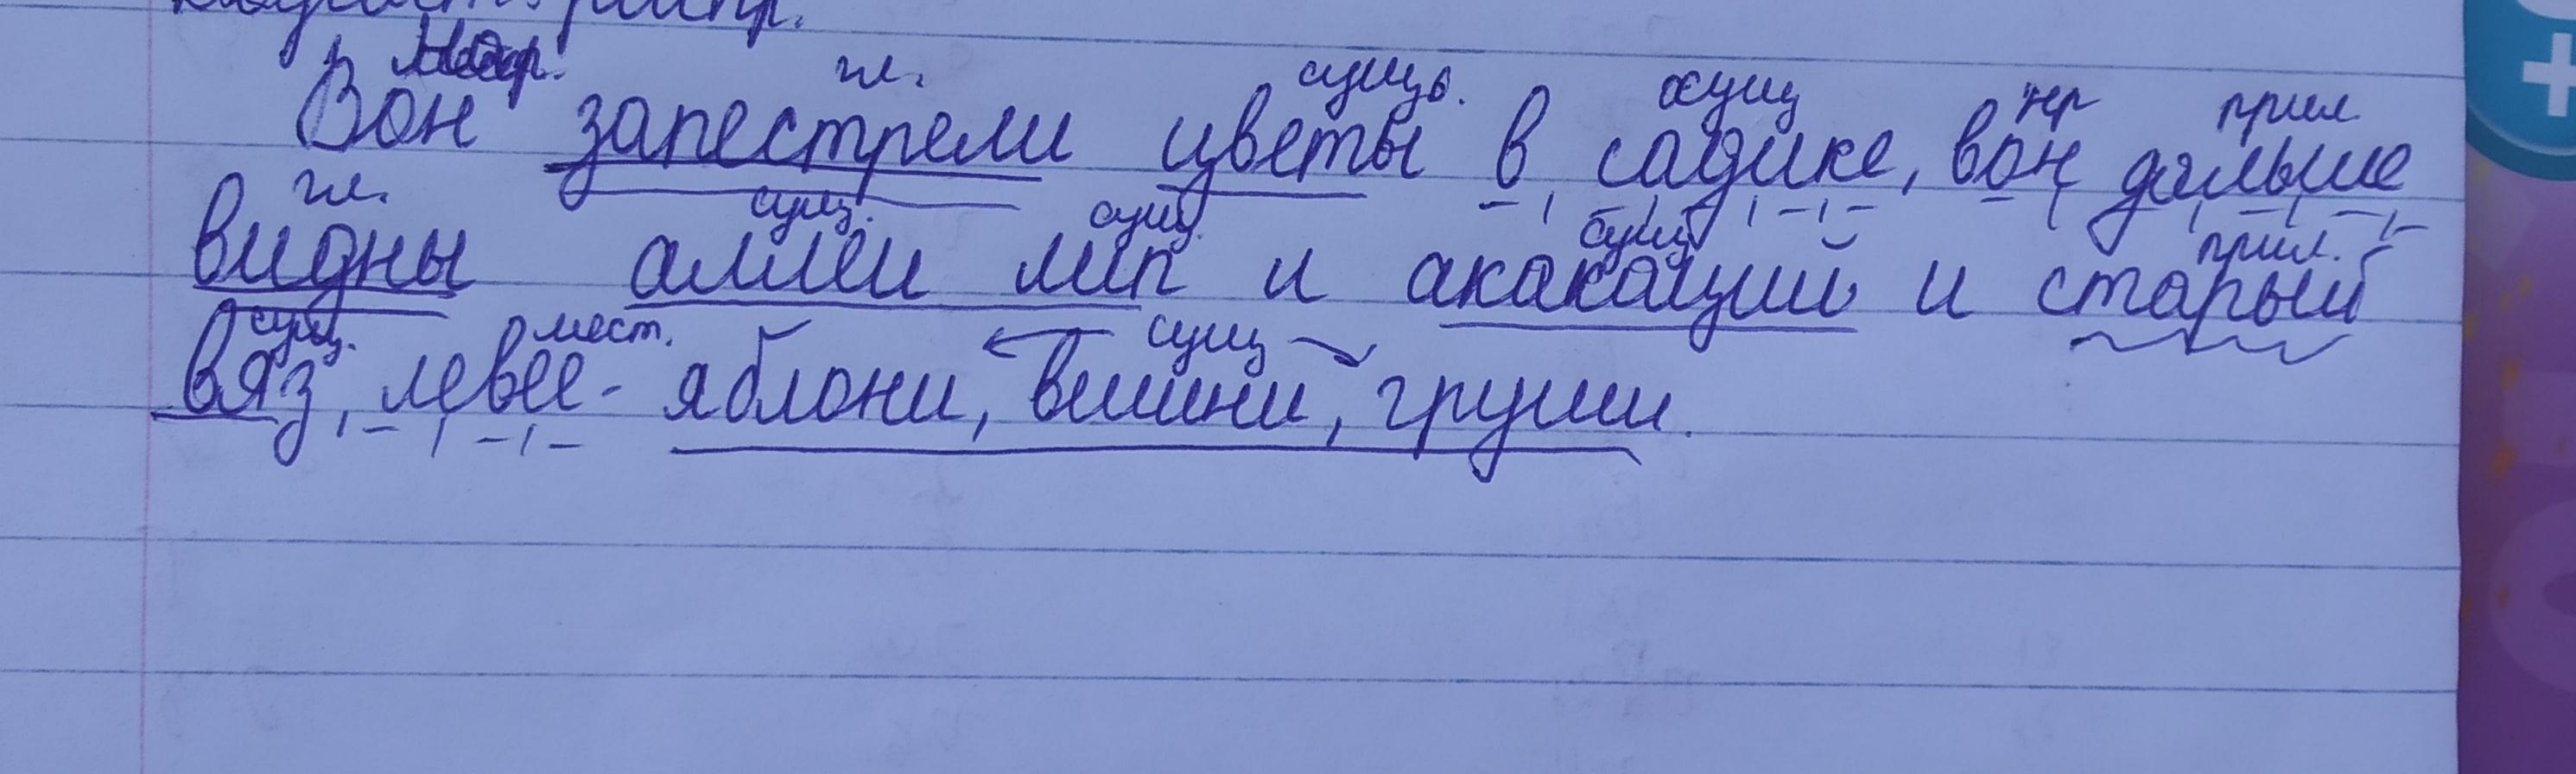 распр.
нар.
гл. сущ. сущ нр прил.
Вон запестрели цветы в садике, вон дальше
гл. сущ. сущ. сущ прил.
видны аллеи лип и акакаций и старый
сущ. мест. сущ
вяз, левее - яблони, вишни, груши.